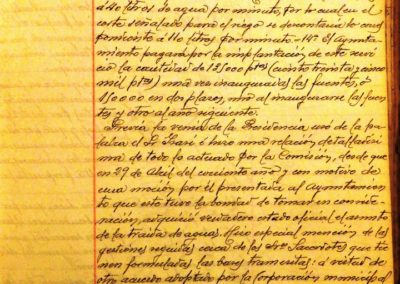 á 40 litros de agua por minuto, por lo cual en el
coste señalado para el riego se descontaria lo cor
respondiente á 110 litros por minuto. 14ª El Ayunta
miento pagará por la implantacion de este servi
cio la cantidad de 125000 ptas (ciento veinte y cinco
mil ptas) una vez inauguradas las fuentes, ó
150000 en dos plazos, uno al inaugurarse las fuen
tes y otro al año siguiente.
Previa la venia de la Presidencia usó de la pa
labra el Sr. é hizo una relación detalladísi
ma de todo lo actuado por la Comisión, desde que
en 29 de Abril del corriente año y con motivo de
una moción por él presentada al Ayuntamien
to que esta tuvo la bondad de tomar en conside
ración, adquirió verdadero estado oficial el asunto
de la traida de aguas. Hizo especial mención de las
gestiones seguidas cerca de los Sres. que tie
nen formuladas las bases transcritas: á virtud de
otro acuerdo adoptado por la Corporación municipal